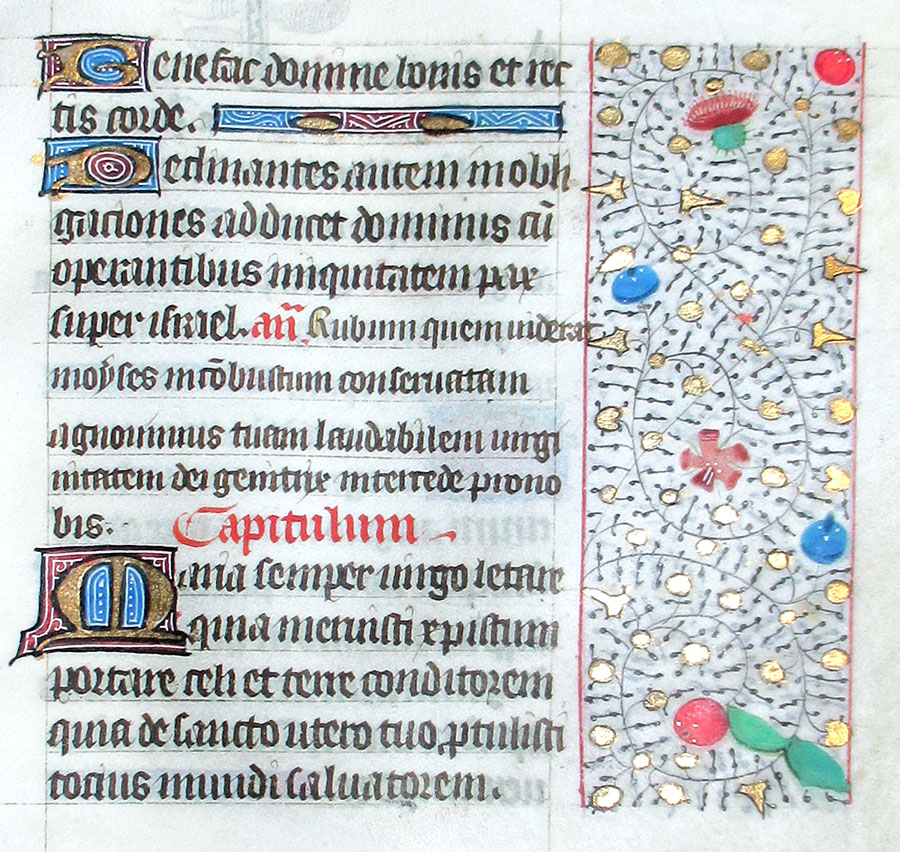 Benefac domine bonis et rec
tis corde.
Declinantes autem in obli
gaciones adducet dominus cū
operantibus iniquitatem pax
super israel. añ Rubum quem uiderat
moyses incōbustum conseruatam
agnouimus tuam laudabilem uirgi
nitatem dei genitrix intercede pro no
bis. Capitulum
Maria semper uirgo letare
quia meruisti xpistum
portare celi et terre conditorem
quia de sancto utero tuo ꝓtulisti
tocius mundi saluatorem.